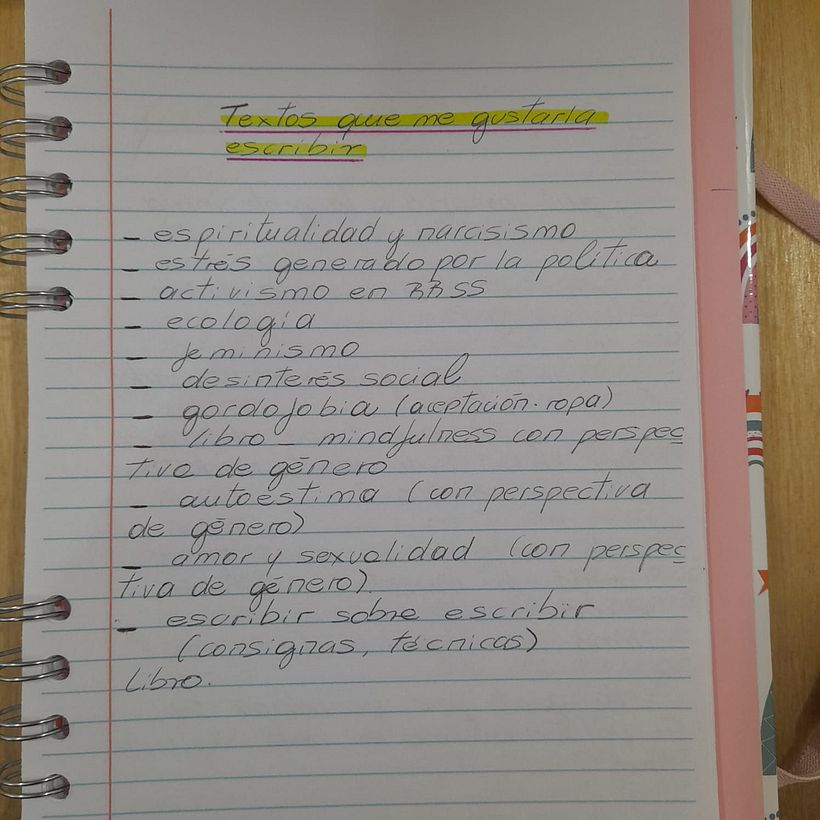 Textos que me gustaría
escribir
- espiritualidad y narcisismo
- estrés generado por la política
- activismo en RRSS
- ecología
- feminismo
- desinterés social
- gordofobia (aceptación. ropa)
- libro - mindfulness con perspec
tiva de género
- autoestima (con perspectiva
de género)
- amor y sexualidad (con perspec
tiva de género).
- escribir sobre escribir
(consignas, técnicas)
Libro.